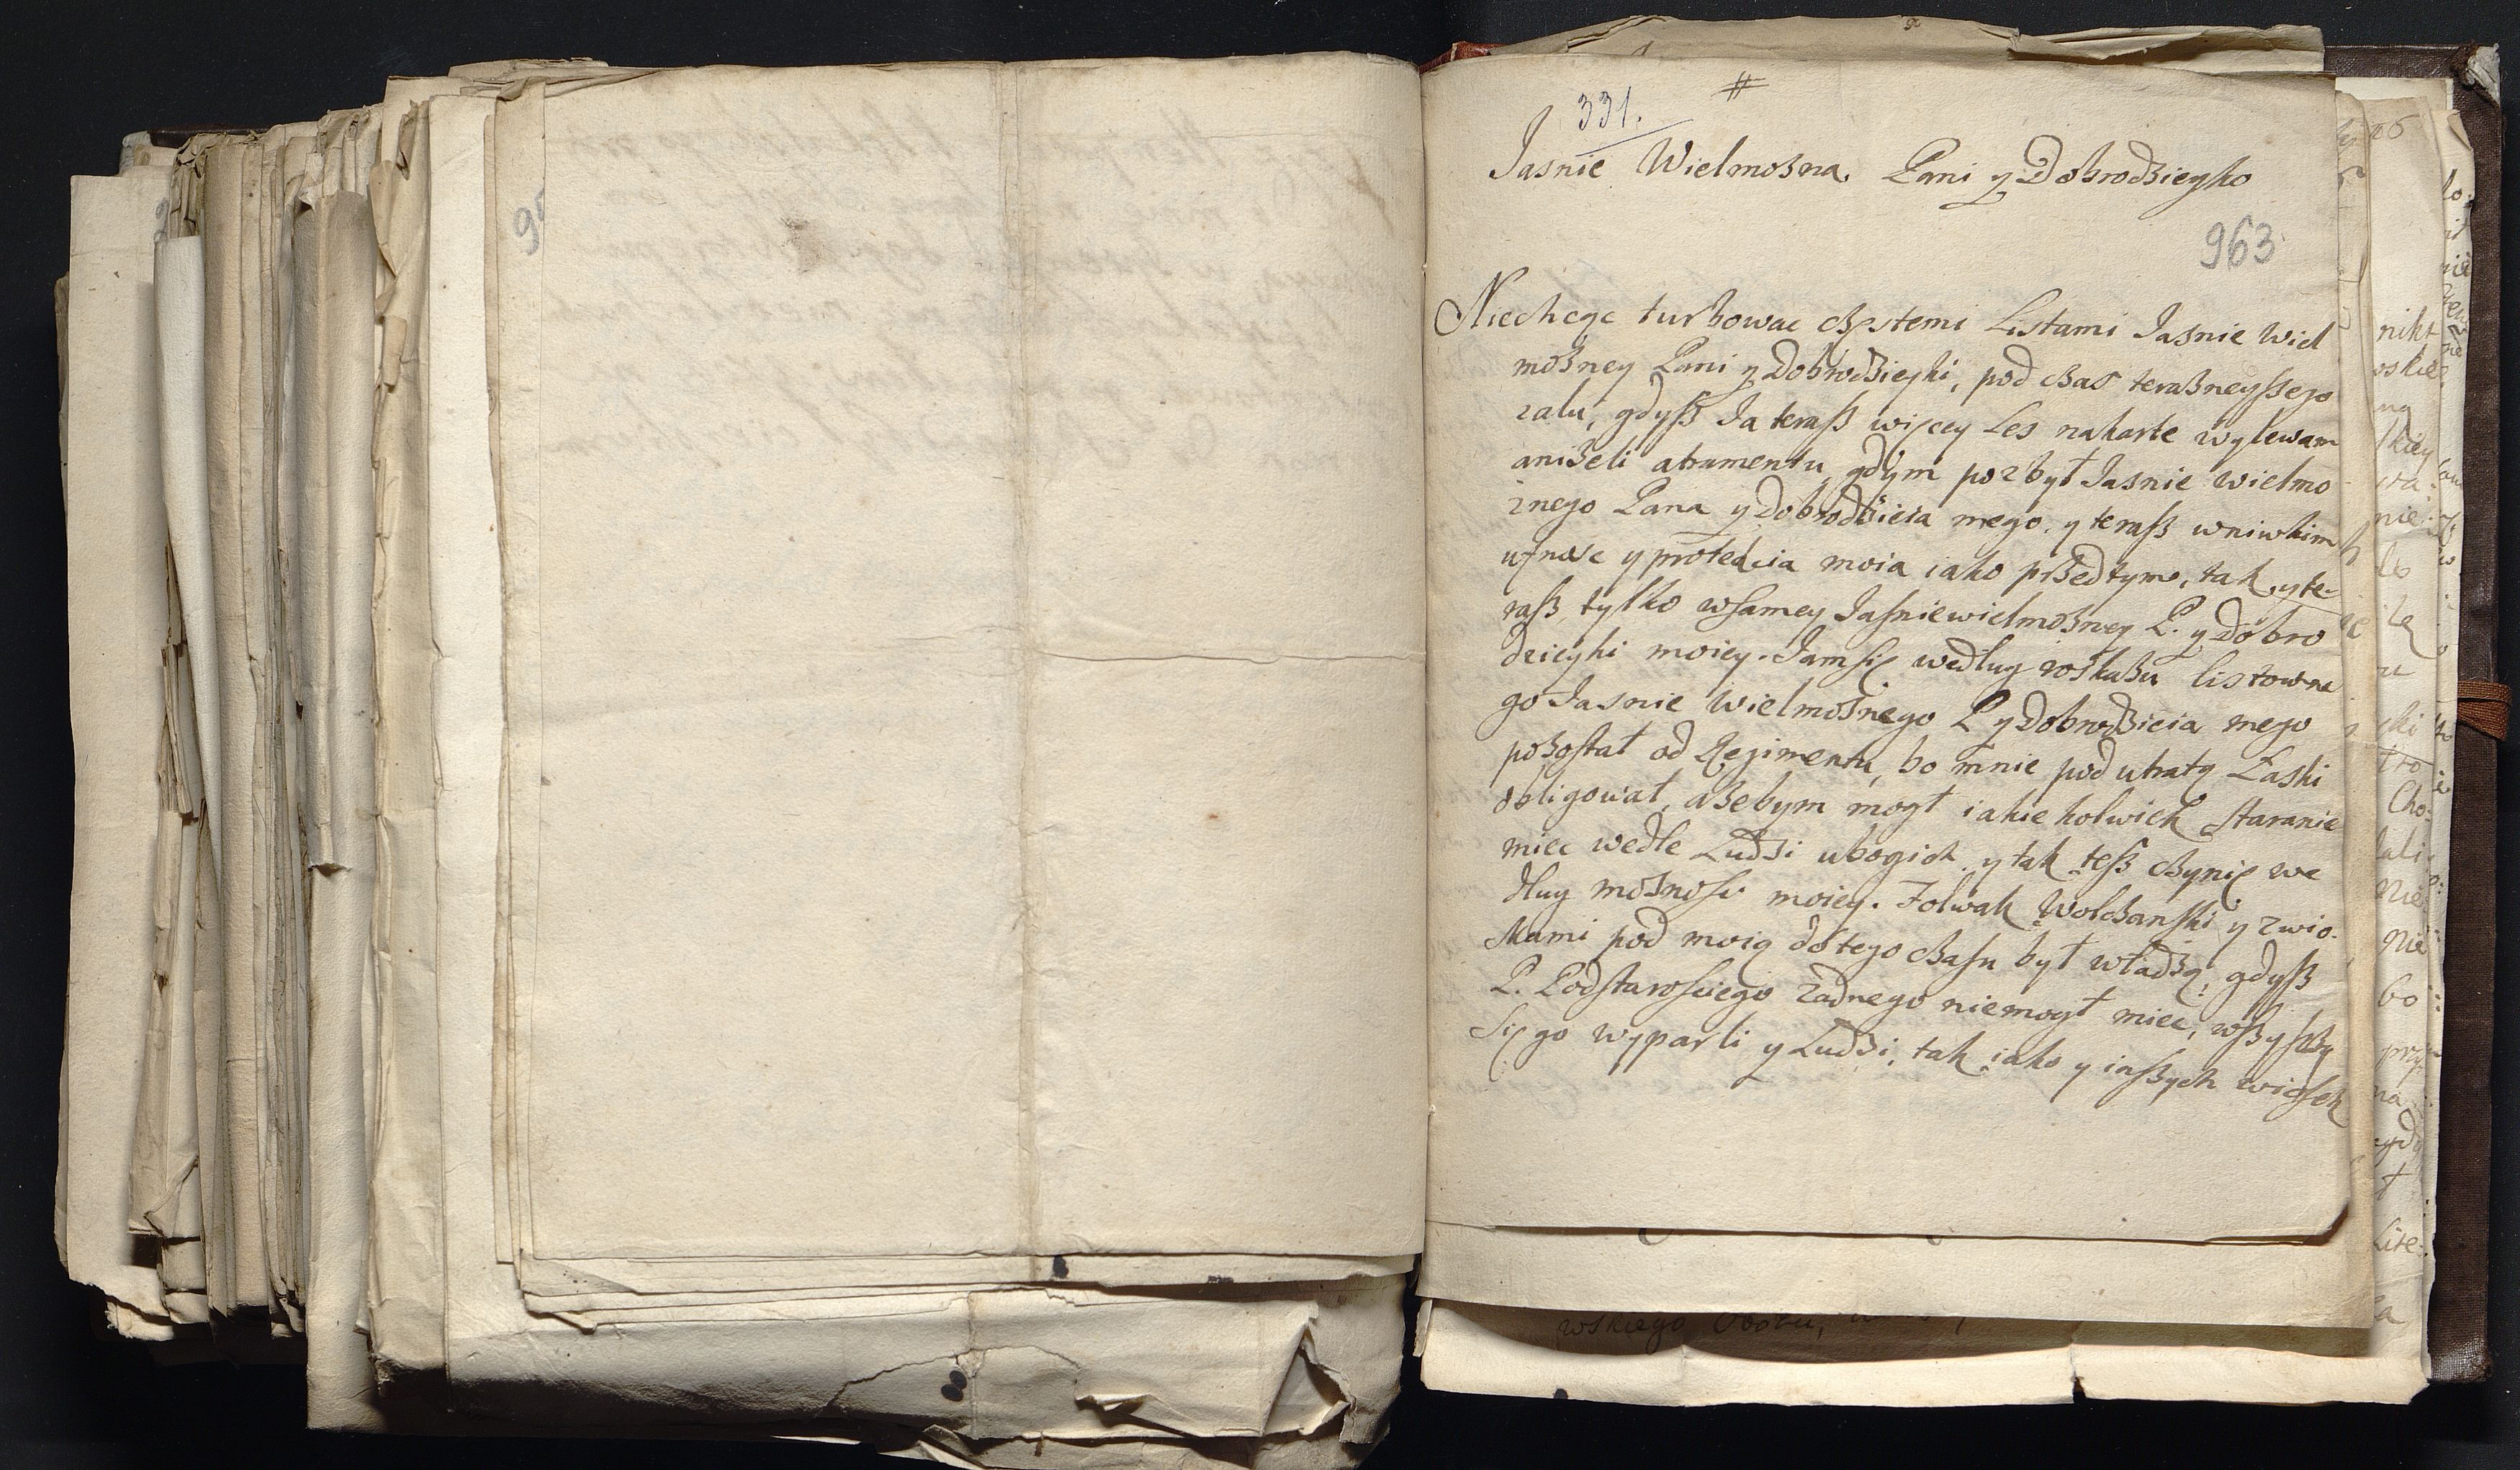 331.
#
Jasnie Wielmozna. Pani y Dobrodzieyko
963
Niechcąc turbowac częstemi Listami Jasnie Wiel
mozney Pani y Dobrodzieyki, pod czas terazneyszego
zalu, gdysz Ja terasz więcey Les nakarte wylewam
anizeli atramentu, gdym pozbył Jasnie wielmo
znego Pana y Dobrodzieia mego. y terasz wniwkim
ufnosc y protectia moia iako przedtym, tak y te-
rasz, tylko wsamey Jasniewielmozney P. y Dobro
dzieyki moiey. Jam się według roskazu listowne
go Jasnie Wielmoznego P y Dobrodzieia mego
pozostał od Regimentu, bo mnie pod utratą Łaski
obligował, azebym mogł iakiekolwiek staranie
miec wedle Ludzi ubogich, y tak tesz czynię we
dług moznosci moiey. Folwak Wolczanski y zwio-
skami pod moią do tego czasu był władzą, gdysz
P. Podstarosciego zadnego niemogł miec, wszyscy
się go wyparli y Ludzi, tak iako y inszych wiosek
26
nikt
Cho:
Nie
Nie
bo
Lite:
wskiego